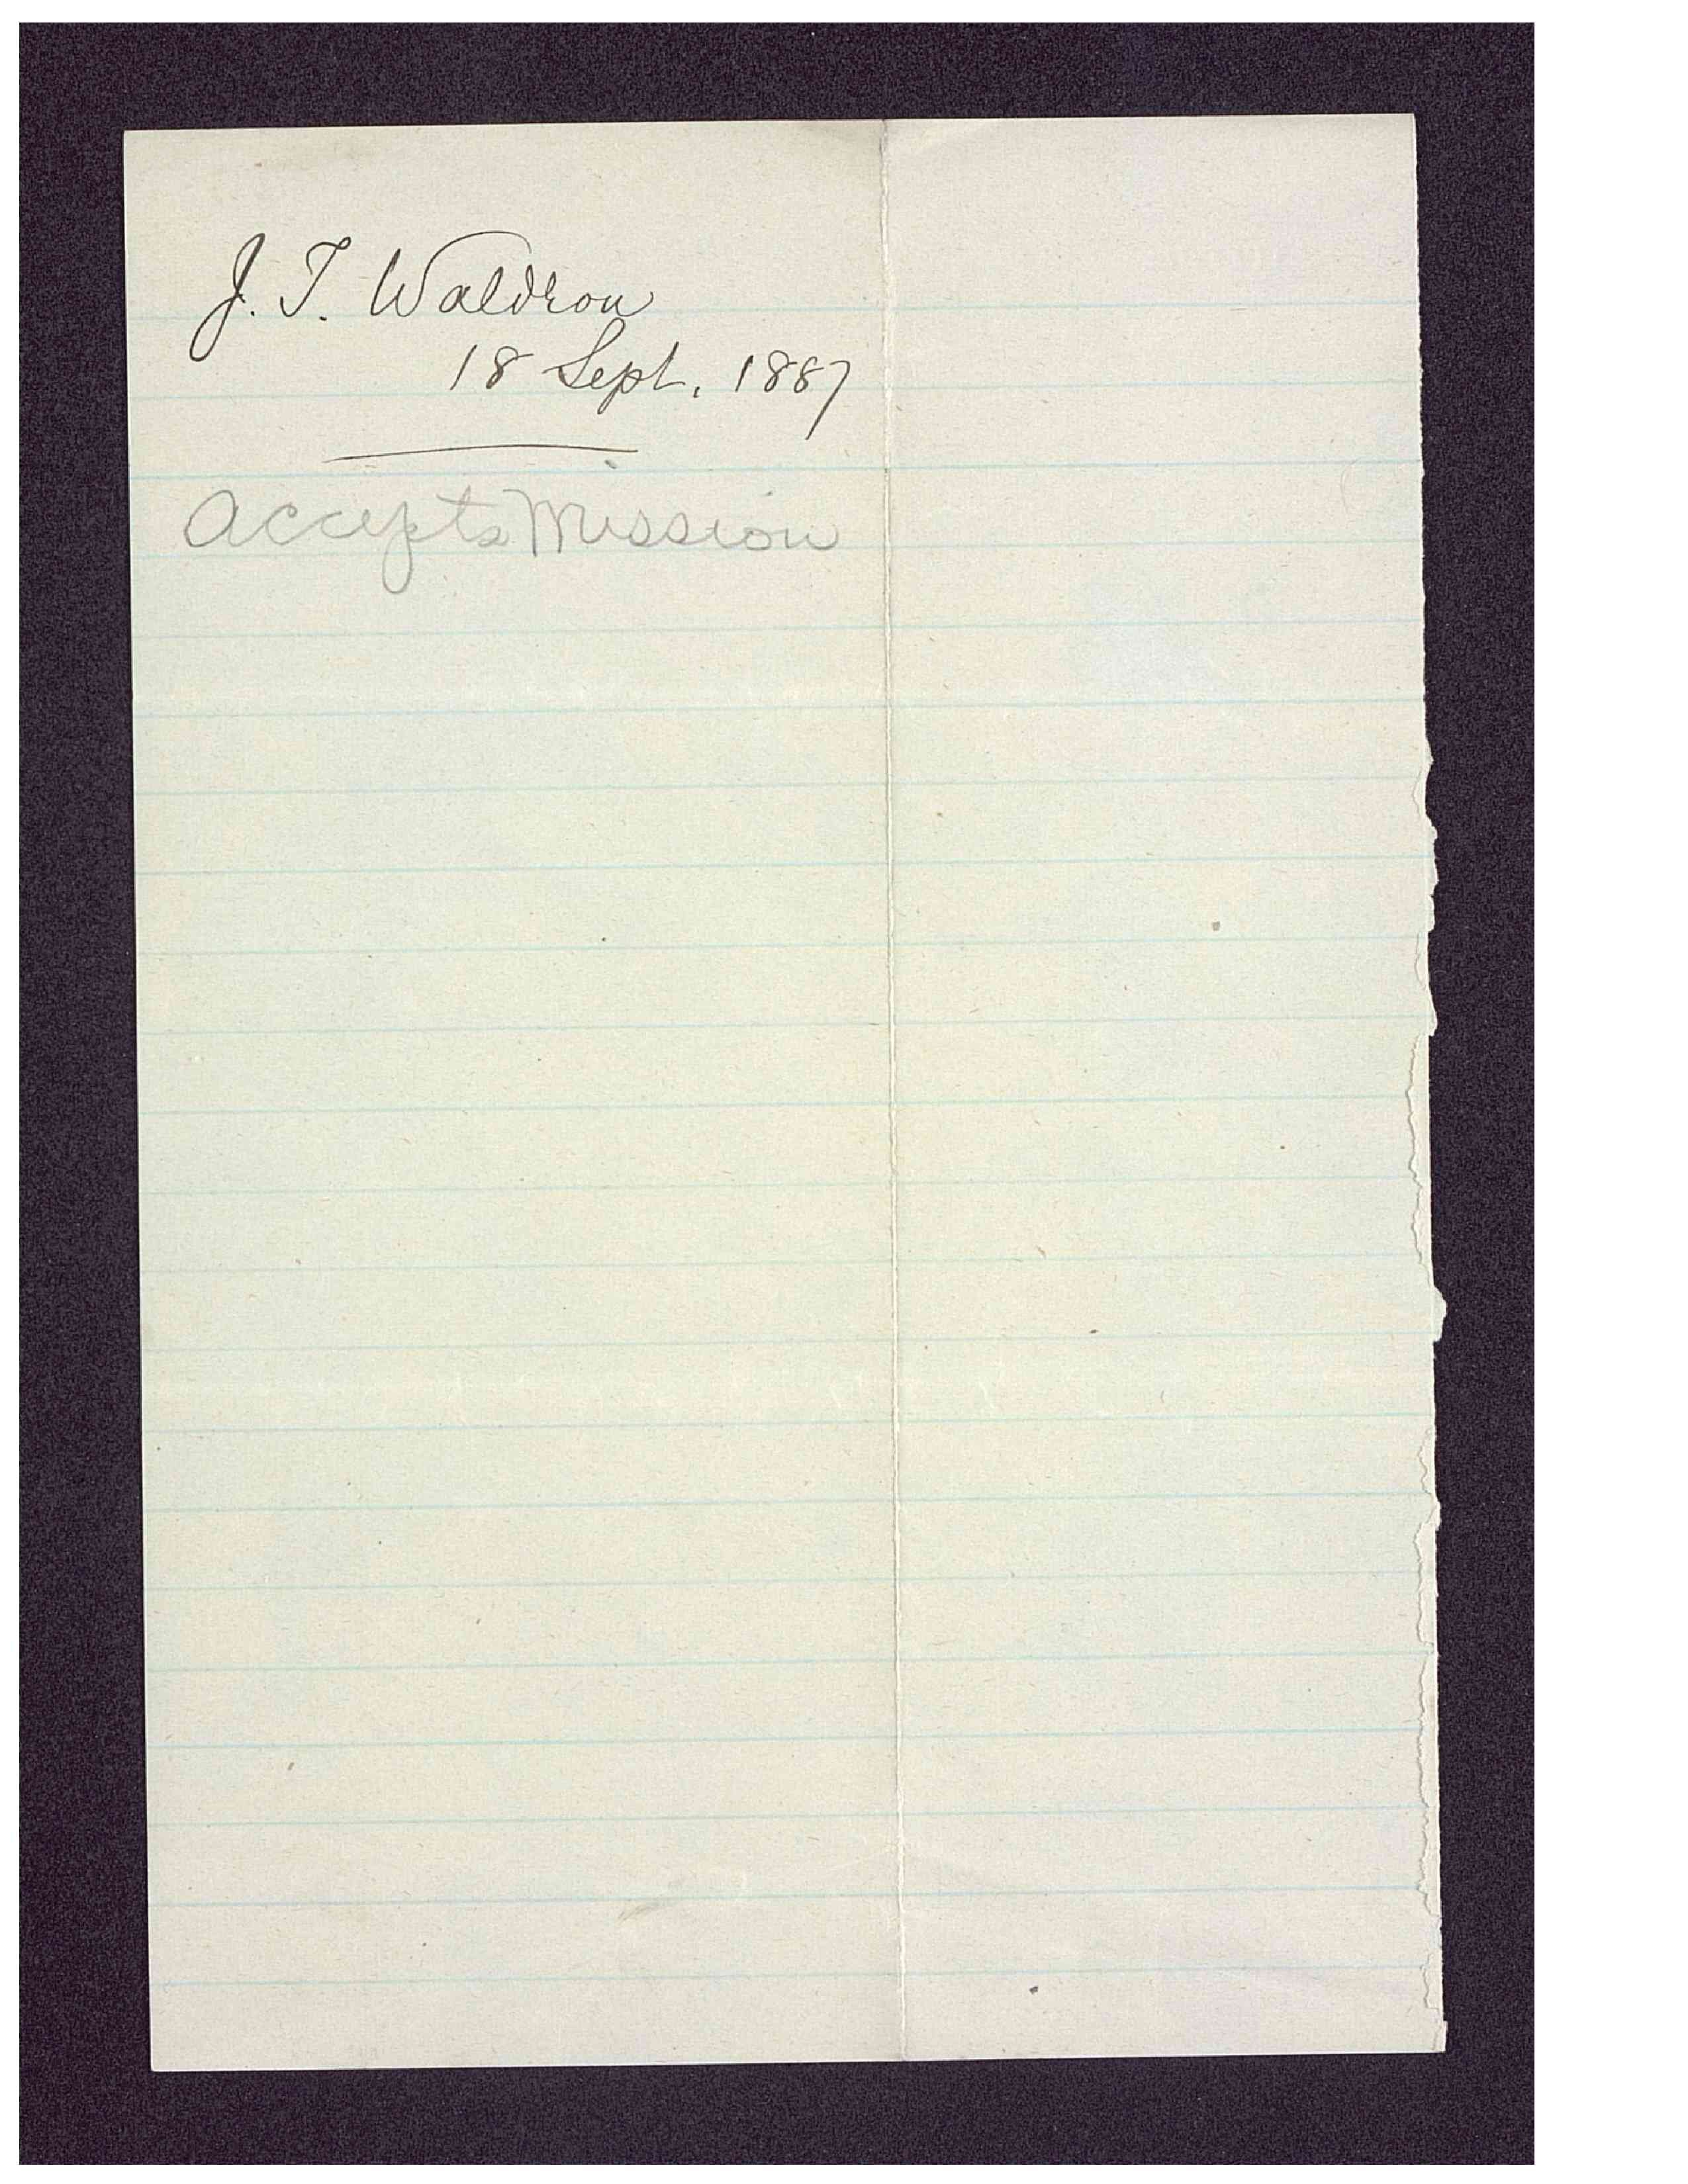 J. T. Waldron
18 Sept, 1887
Accepts Mission